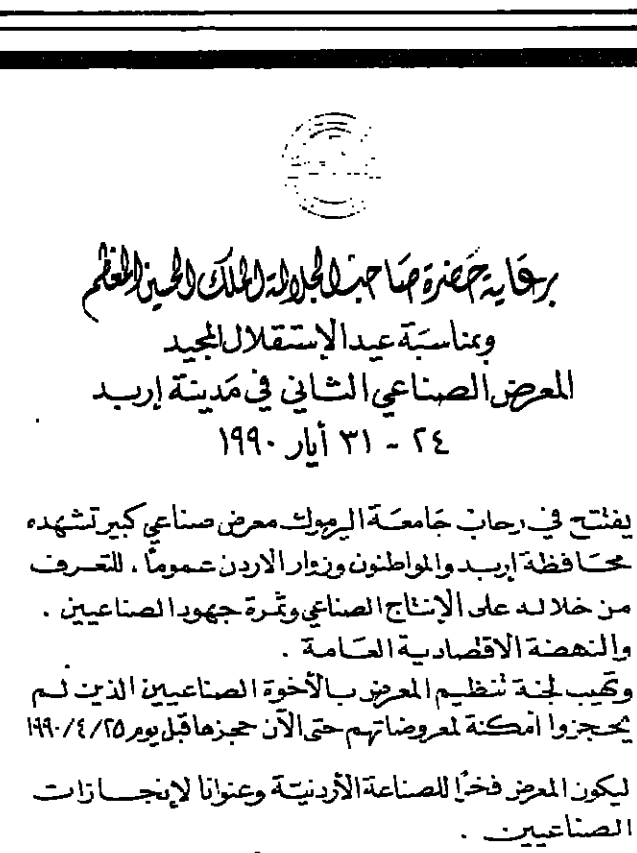 برعاية حضرة صاحب الجلالة الملك الحسين المعظم
وبمناسبة عيد الإستقلال المجيد
المعرض الصناعي الثاني في مدينة إربد
٢٤ - ٣١ أيار ١٩٩٠
يفتتح في رحاب جامعة اليرموك معرض صناعي كبير تشهده
محافظة إربد والمواطنون وزوار الاردن عموماً ، للتعرف
من خلاله على الإنتاج الصناعي وثمرة جهود الصناعيين .
والنهضة الاقتصادية العامة .
وتهيب لجنة تنظيم المعرض بالأخوة الصناعيين الذين لم
يحجزوا امكنة لمعروضاتهم حتى الآن حجزها قبل يوم ١٩٩٠/٤/٢٥
ليكون المعرض فخراً للصناعة الأردنية وعنوانا لإنجازات
الصناعيين .